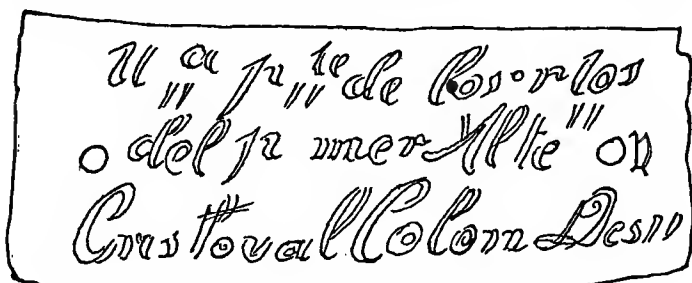 U„ª p„ᵗᵉ de los·rtos
del pr mer Alte" D
Cristoval Colon Des